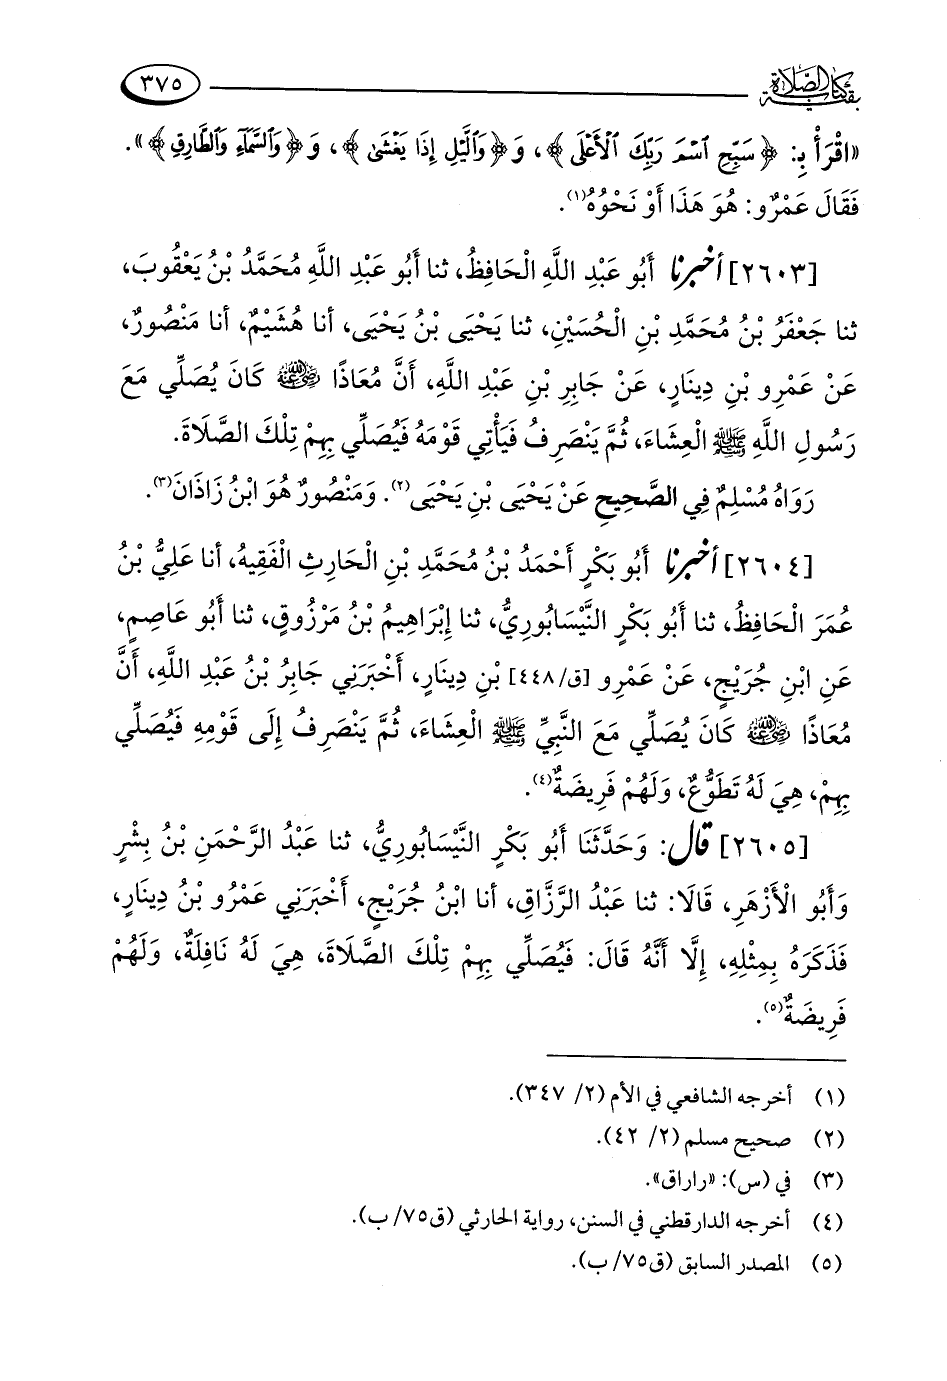 بقية كتاب الصلاة
٣٧٥
«اقْرَأْ بِـ: ﴿سَبِّحِ ٱسْمَ رَبِّكَ ٱلْأَعْلَى﴾، وَ﴿وَٱلَّيْلِ إِذَا يَغْشَىٰ﴾، وَ﴿وَٱلسَّمَآءِ وَٱلطَّارِقِ﴾».
فَقَالَ عَمْرٌو: هُوَ هَذَا أَوْ نَحْوُهُ(١).
[٢٦٠٣] أخبرنا أَبُو عَبْدِ اللَّهِ الْحَافِظُ، ثنا أَبُو عَبْدِ اللَّهِ مُحَمَّدُ بْنُ يَعْقُوبَ،
ثنا جَعْفَرُ بْنُ مُحَمَّدِ بْنِ الْحُسَيْنِ، ثنا يَحْيَى بْنُ يَحْيَى، أنا هُشَيْمٌ، أنا مَنْصُورٌ،
عَنْ عَمْرِو بْنِ دِينَارٍ، عَنْ جَابِرِ بْنِ عَبْدِ اللَّهِ، أَنَّ مُعَاذًا رضي الله عنه كَانَ يُصَلِّي مَعَ
رَسُولِ اللَّهِ ﷺ الْعِشَاءَ، ثُمَّ يَنْصَرِفُ فَيَأْتِي قَوْمَهُ فَيُصَلِّي بِهِمْ تِلْكَ الصَّلَاةَ.
رَوَاهُ مُسْلِمٌ فِي الصَّحِيحِ عَنْ يَحْيَى بْنِ يَحْيَى(٢). وَمَنْصُورٌ هُوَ ابْنُ زَاذَانَ(٣).
[٢٦٠٤] أخبرنا أَبُو بَكْرٍ أَحْمَدُ بْنُ مُحَمَّدِ بْنِ الْحَارِثِ الْفَقِيهُ، أنا عَلِيُّ بْنُ
عُمَرَ الْحَافِظُ، ثنا أَبُو بَكْرٍ النَّيْسَابُورِيُّ، ثنا إِبْرَاهِيمُ بْنُ مَرْزُوقٍ، ثنا أَبُو عَاصِمٍ،
عَنِ ابْنِ جُرَيْجٍ، عَنْ عَمْرِو [ق/٤٤٨] بْنِ دِينَارٍ، أَخْبَرَنِي جَابِرُ بْنُ عَبْدِ اللَّهِ، أَنَّ
مُعَاذًا رضي الله عنه كَانَ يُصَلِّي مَعَ النَّبِيِّ ﷺ الْعِشَاءَ، ثُمَّ يَنْصَرِفُ إِلَى قَوْمِهِ فَيُصَلِّي
بِهِمْ، هِيَ لَهُ تَطَوُّعٌ، وَلَهُمْ فَرِيضَةٌ(٤).
[٢٦٠٥] قال: وَحَدَّثَنَا أَبُو بَكْرٍ النَّيْسَابُورِيُّ، ثنا عَبْدُ الرَّحْمَنِ بْنُ بِشْرٍ
وَأَبُو الْأَزْهَرِ، قَالَا: ثنا عَبْدُ الرَّزَّاقِ، أنا ابْنُ جُرَيْجٍ، أَخْبَرَنِي عَمْرُو بْنُ دِينَارٍ،
فَذَكَرَهُ بِمِثْلِهِ، إِلَّا أَنَّهُ قَالَ: فَيُصَلِّي بِهِمْ تِلْكَ الصَّلَاةَ، هِيَ لَهُ نَافِلَةٌ، وَلَهُمْ
فَرِيضَةٌ(٥).
(١) أخرجه الشافعي في الأم (٢/ ٣٤٧).
(٢) صحيح مسلم (٢/ ٤٢).
(٣) في (س): «راراق».
(٤) أخرجه الدارقطني في السنن، رواية الحارثي (ق٧٥/ ب).
(٥) المصدر السابق (ق٧٥/ ب).